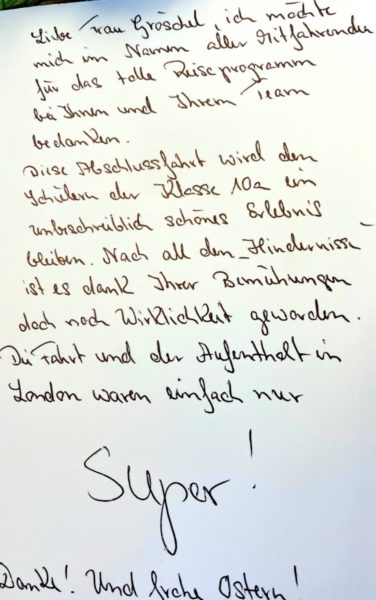 Liebe Frau Gröschel, ich möchte
mich im Namen aller Mitfahrenden
für das tolle Reiseprogramm
bei Ihnen und Ihrem Team
bedanken.
Diese Abschlussfahrt wird den
Schülern der Klasse 10a ein
unbschreiblich schönes Erlebnis
bleiben. Nach all den „Hindernissen"
ist es dank Ihrer Bemühungen
doch noch Wirklichkeit geworden.
Die Fahrt und der Aufenthalt in
London waren einfach nur
Super!
Danke! Und frohe Ostern!